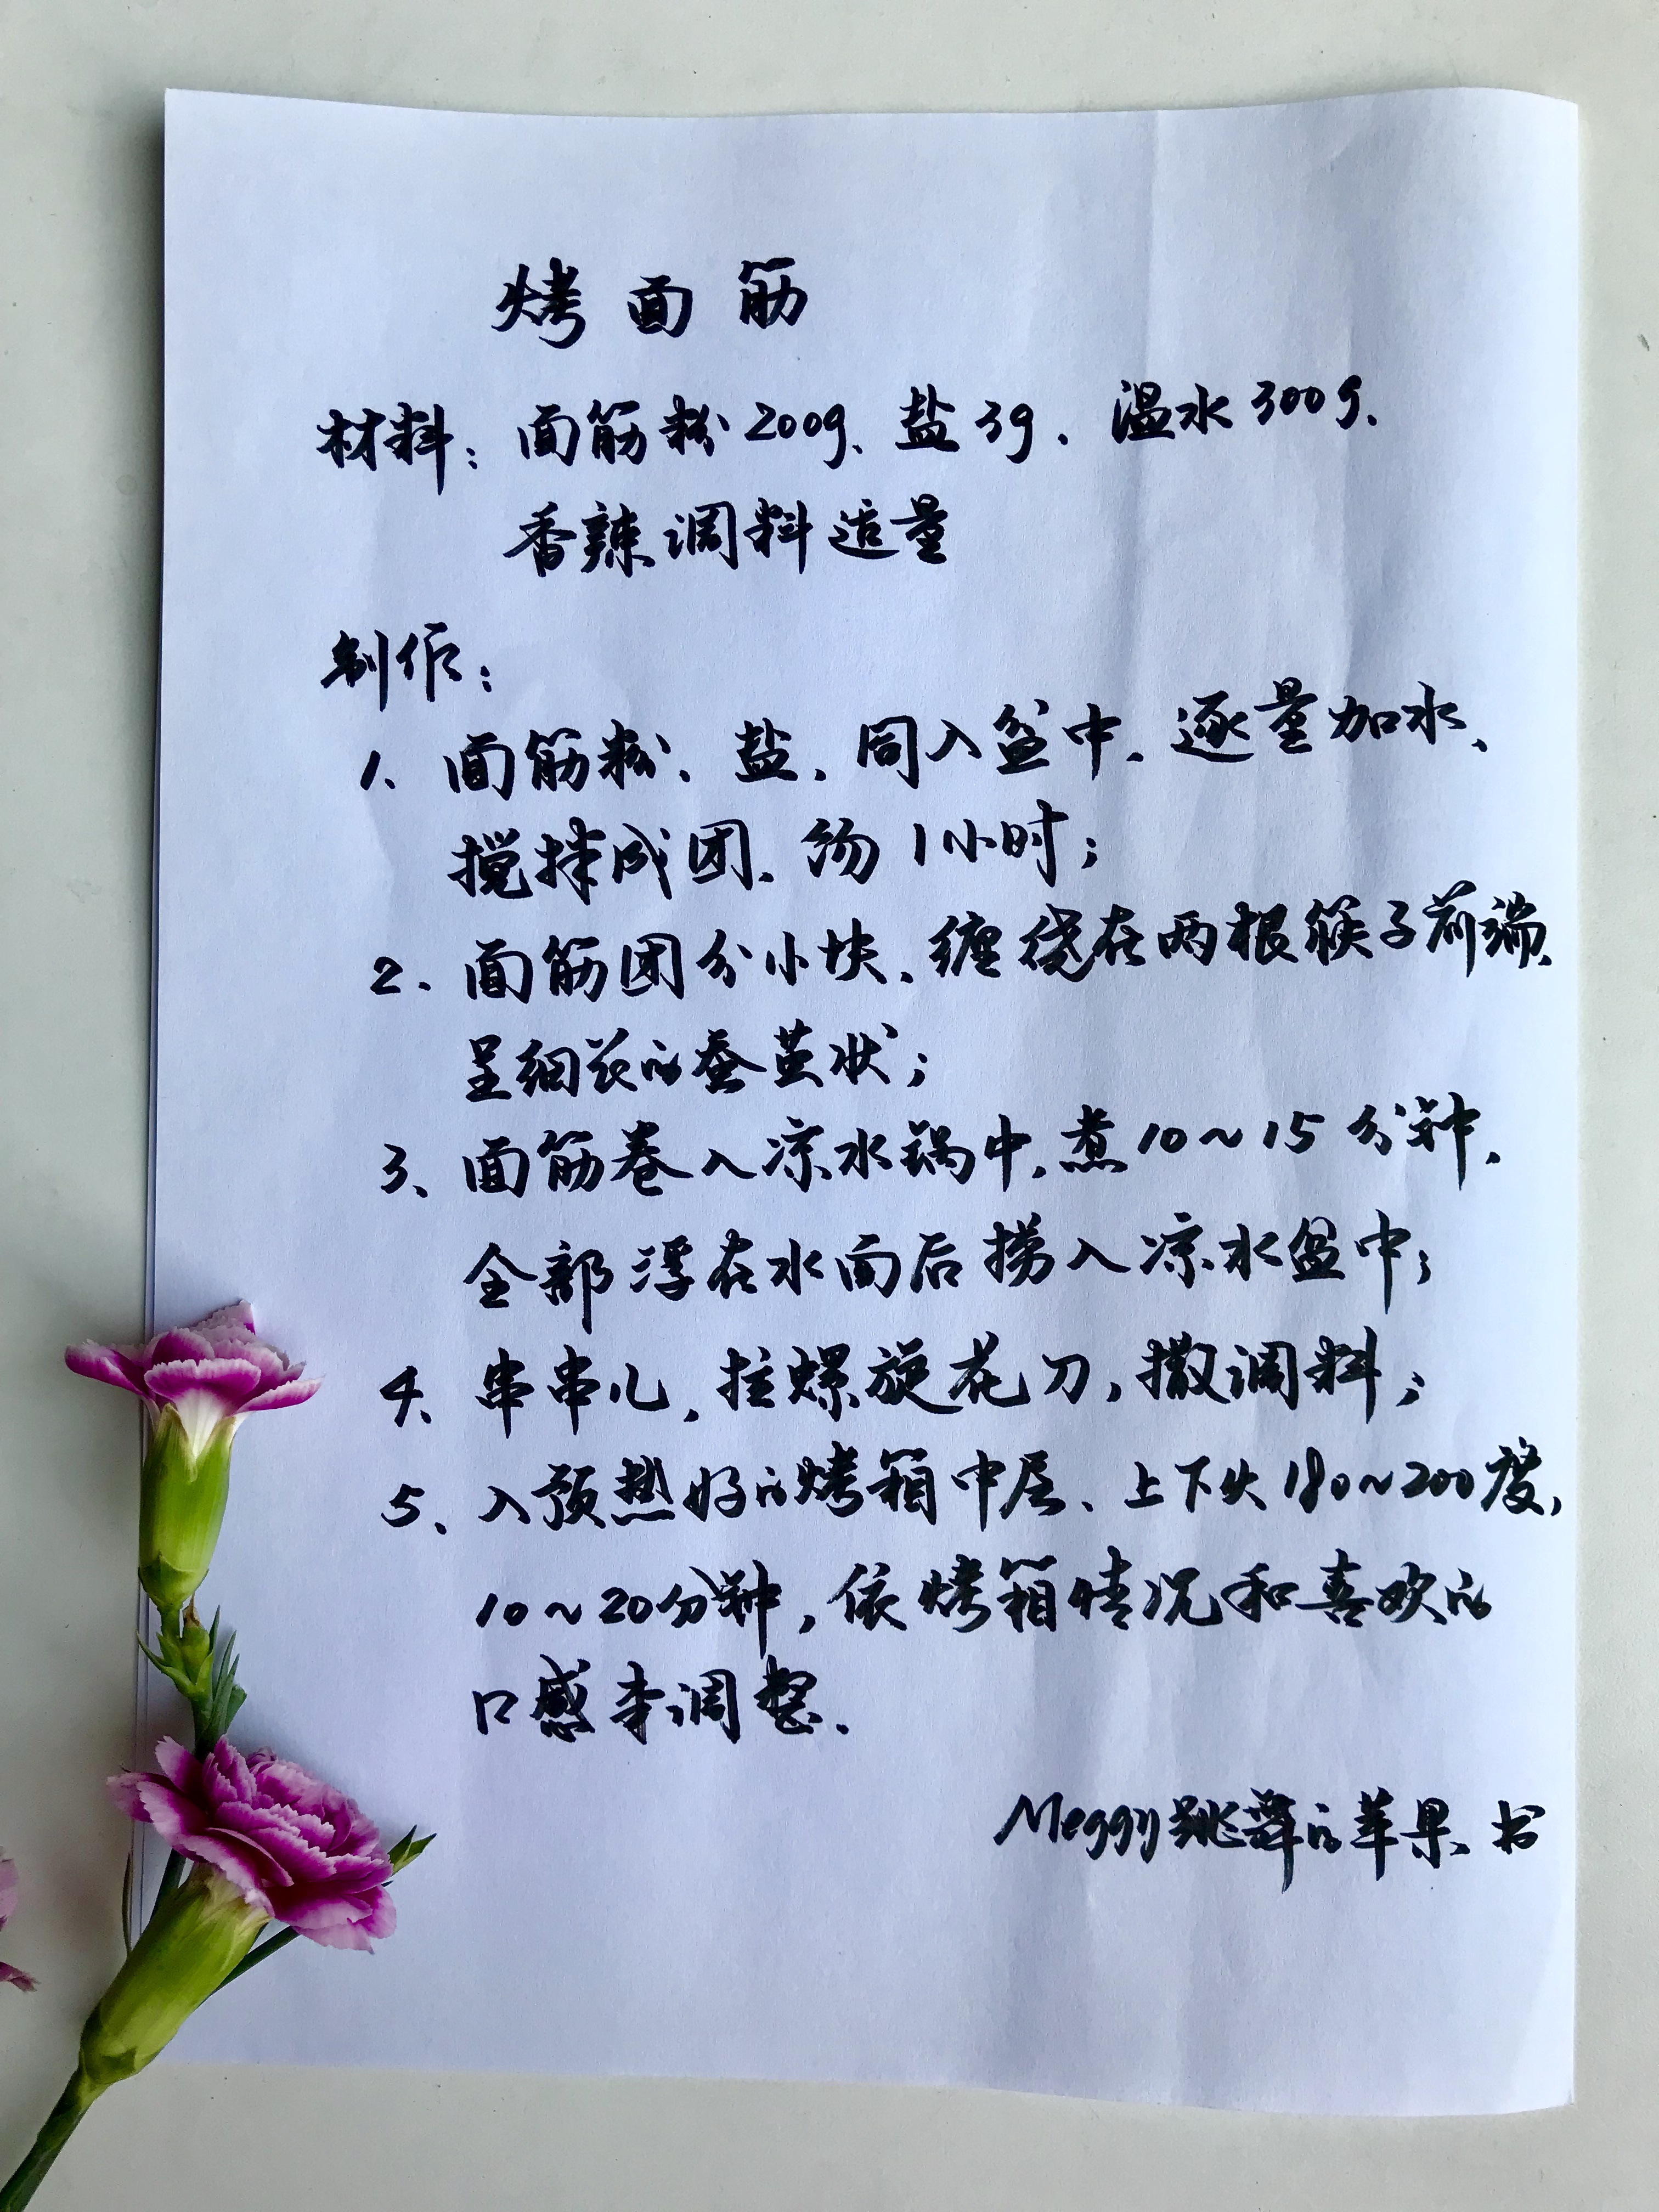 烤面筋
材料：面筋粉200g、盐3g、温水300g、
香辣调料适量
制作：
1、面筋粉、盐、同入盆中、逐量加水、
搅拌成团、饧1小时；
2、面筋团分小块、缠绕在两根筷子前端、
呈细长的蚕茧状；
3、面筋卷入凉水锅中，煮10~15分钟，
全部浮在水面后捞入凉水盆中；
4、串串儿，拉螺旋花刀，撒调料；
5、入预热好的烤箱中层、上下火180~200度，
10~20分钟，依烤箱情况和喜欢的
口感来调整.
Meggy跳舞的苹果、书